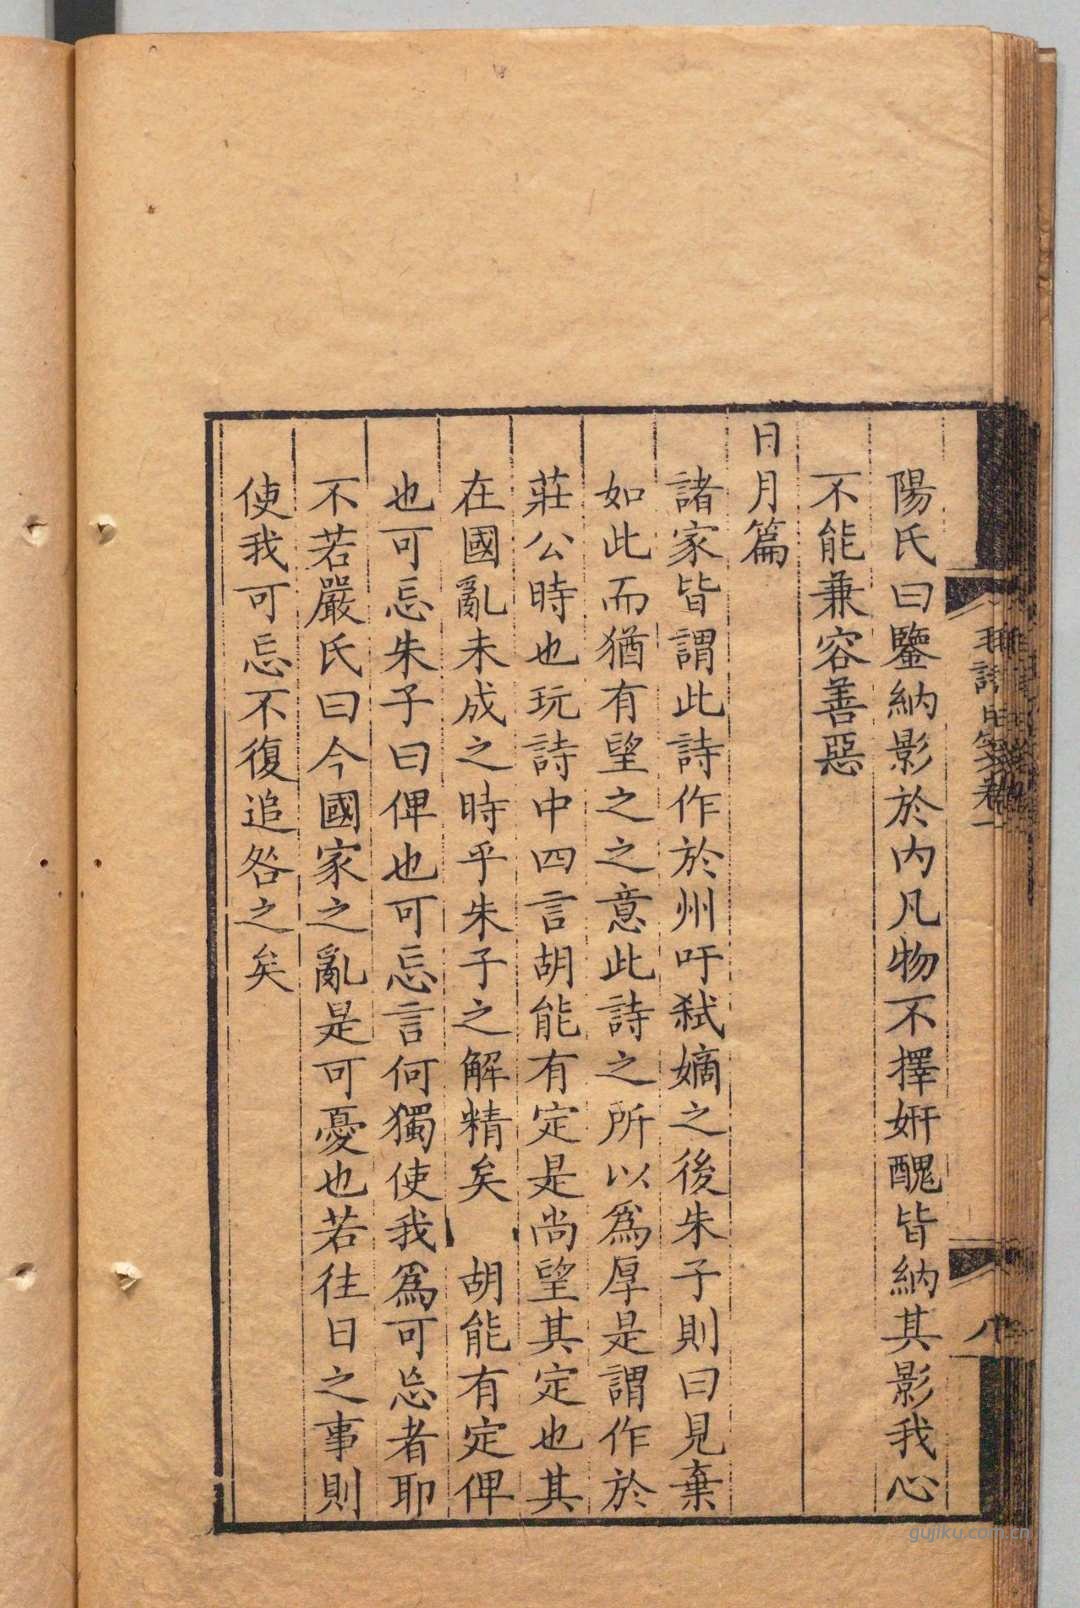 陽氏曰鑒納影於內凡物不擇姸醜皆納其影我心
不能兼容善惡
日月篇
諸家皆謂此詩作於州吁弒嫡之後朱子則曰見棄
如此而猶有望之之意此詩之所以爲厚是謂作於
莊公時也玩詩中四言胡能有定是尚望其定也其
在國亂未成之時乎朱子之解精矣　胡能有定俾
也可忘朱子曰俾也可忘言何獨使我爲可忘者耶
不若嚴氏曰今國家之亂是可憂也若往日之事則
使我可忘不復追咎之矣
gujiku.com.cn